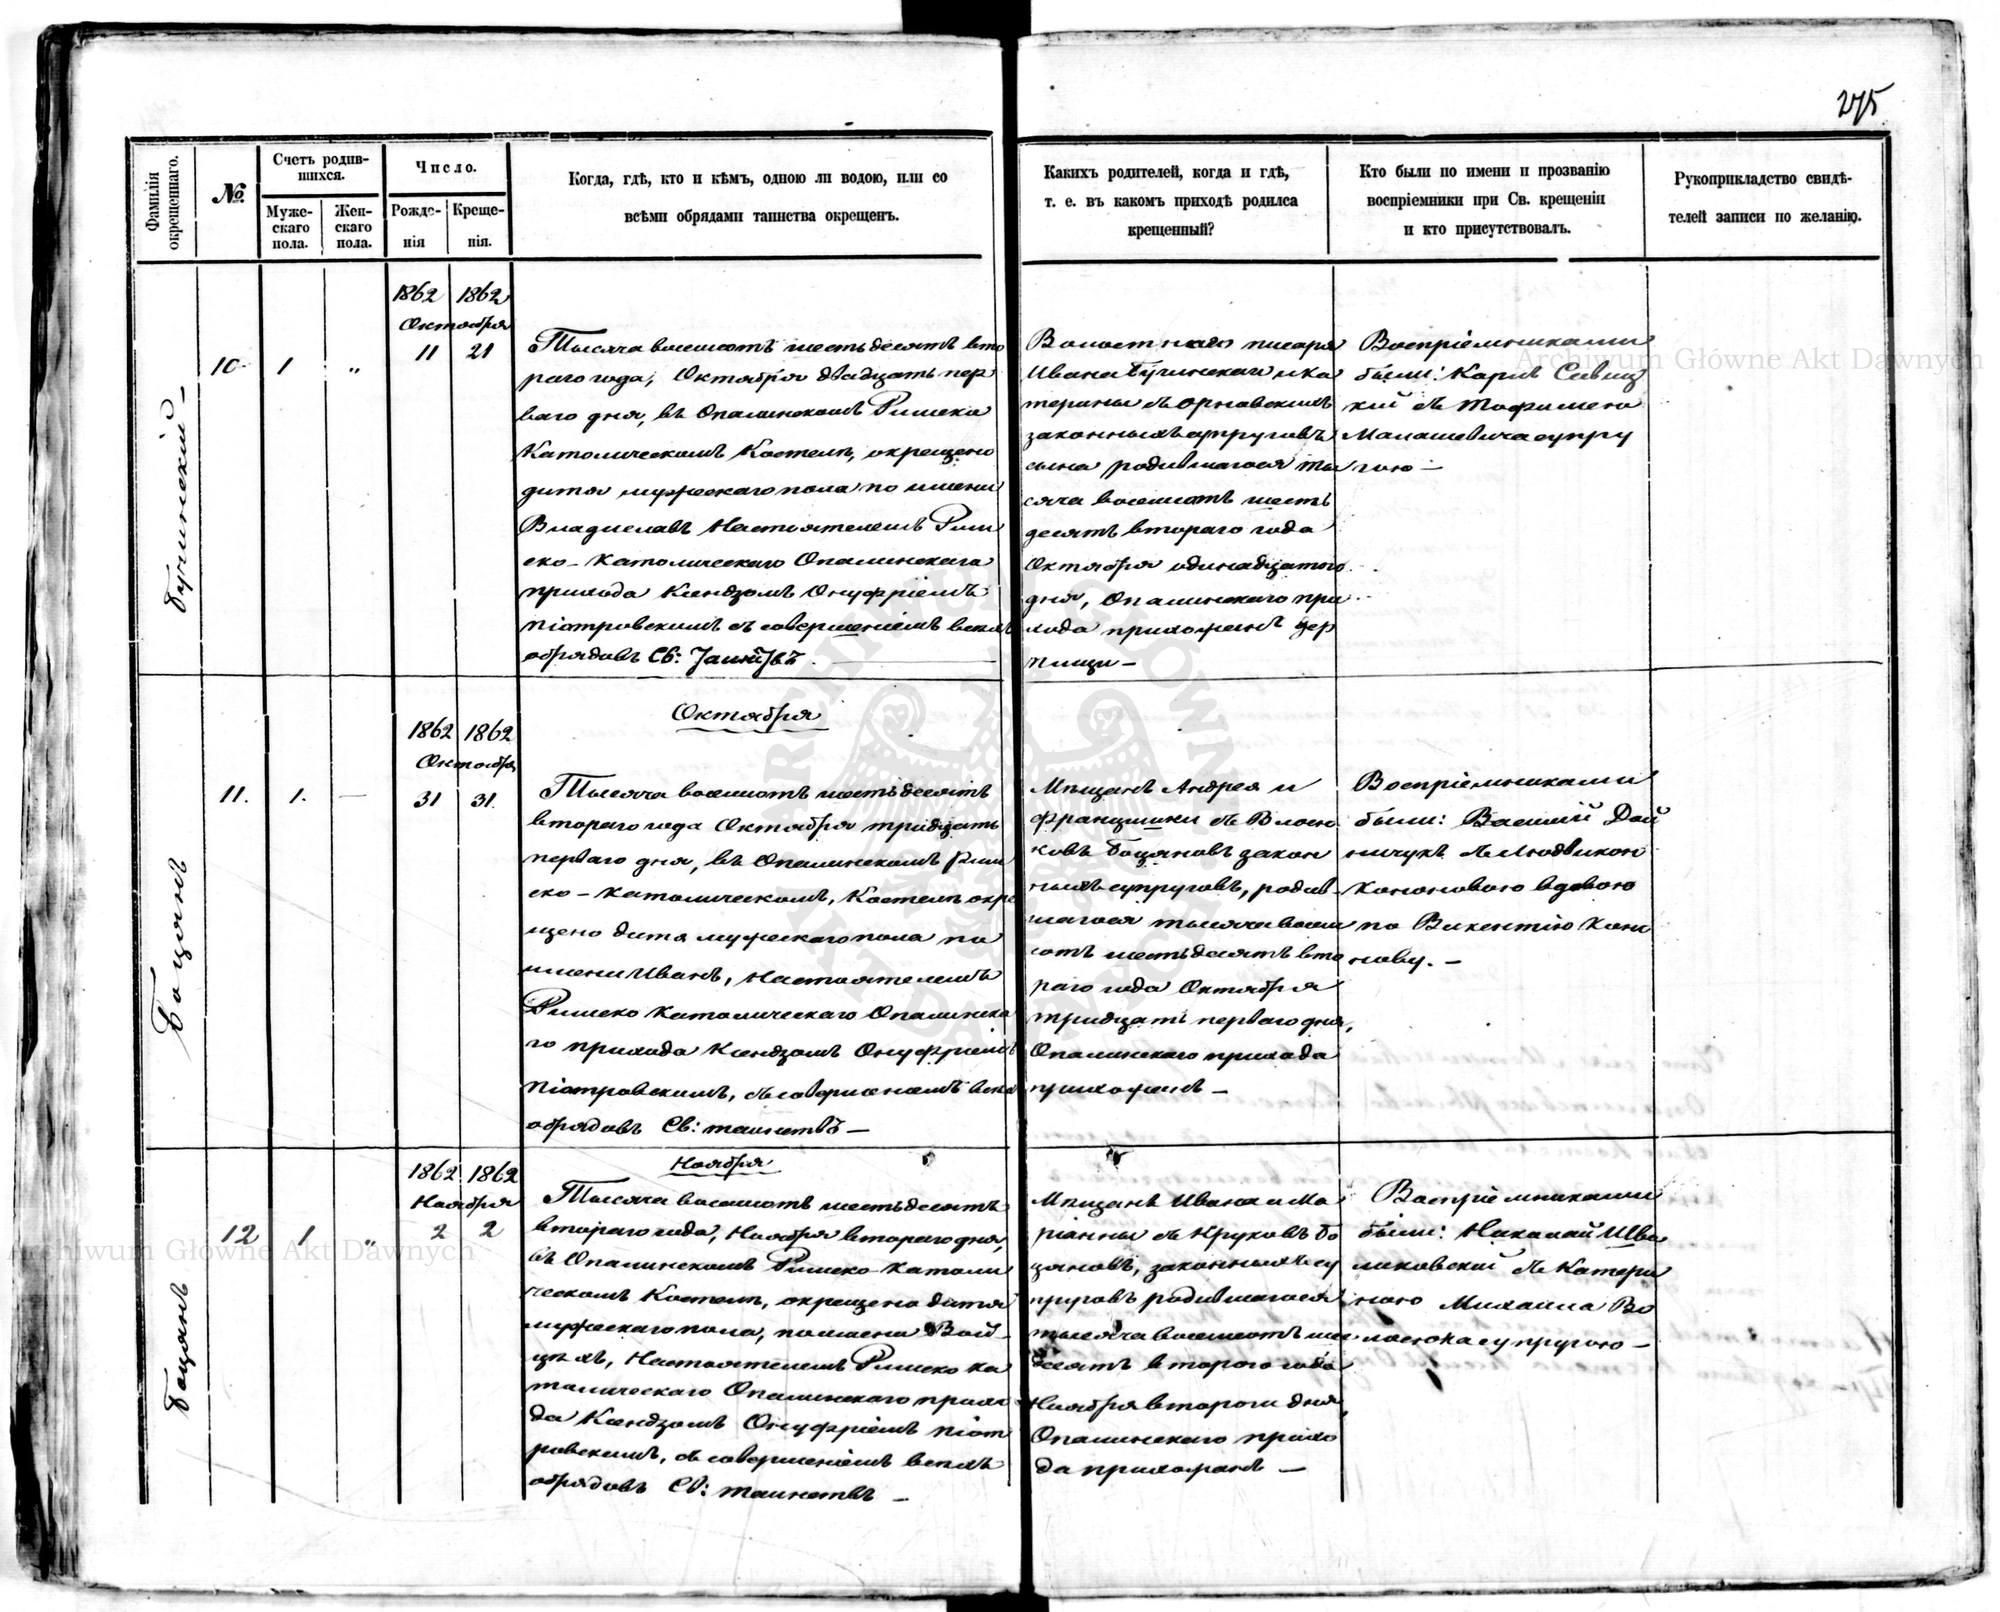 275
Фамилія окрещеннаго.
№
Счетъ родив-
шихся.
Муже-
скаго
пола.
Жен-
скаго
пола.
Число.
Рожде-
нія
Креще-
нія.
Когда, гдѣ, кто и кѣмъ, одною ли водою, или со
всѣми обрядами таинства окрещенъ.
Каких родителей, когда и гдѣ,
т. е. въ какомъ приходѣ родился
крещенный?
Кто были по имени и прозванію
воспріемники при Св. крещеніи
и кто присутствовалъ.
Рукоприкладство свидѣ-
телей записи по желанію.
Бучинскій
10
1
"
1862 1862
Октября
11 21
Тысяча восемсотъ шестьдесятъ вто
раго года, Октября двадцать пер
ваго дня, въ Опалинскомъ Римско
Католическомъ Костелѣ, окрещено
дитя мужескаго пола по имени
Владиславъ Настоятелемъ Рим
ско-католическаго Опалинскаго
прихода Ксендзомъ Онуфріемъ
Піотровскимъ съ совершеніемъ всѣхъ
обрядовъ Св: Таинствъ
Волостнаго писаря
Ивана Бучинскаго и Ка
терины съ Орловскихъ
законныхъ супруговъ
сына родившагося ты
сяча восемсотъ шесть
десятъ втораго года
Октября одинадцатого
дня, Опалинскаго при
хода прихожанъ дер
Воспріемниками
были: Карлъ Савиц
кій съ
Малашевича супру
гою —
Боцянъ
11.
1.
—
1862 1862
Октября
31 31.
Октября
Тысяча восемсотъ шестьдесятъ
втораго года Октября тридцать
перваго дня, въ Опалинскомъ Рим
ско-католическомъ, Костелѣ окре
щено дитя мужескаго пола по
имени Иванъ, Настоятелемъ
Римско католическаго Опалинска
го прихода Ксендзомъ Онуфріемъ
Піотровскимъ, съ совершеніемъ всѣхъ
обрядовъ Св: таинствъ —
Мѣщанъ Андрея и
Францишки съ Власю
ковъ Боцяновъ закон
ныхъ супруговъ, родив-
шагося тысяча восем
сотъ шестьдесятъ вто
раго года Октября
тридцать перваго дня,
Опалинскаго прихода
прихожанъ —
Воспріемниками
были: Василій Дай
ничукъ съ Людвикою
Кононовою вдовою
по Викентію Коно
нову. —
Боцянъ
12
1
"
1862 1862
Ноября
2 2
Ноября
Тысяча восемсотъ шестьдесятъ
втораго года, Ноября втораго дня,
въ Опалинскомъ Римско-католи
ческомъ Костелѣ, окрещено дитя
мужескаго пола, по имени Вой-
цѣхъ, Настоятелемъ Римско ка
толическаго Опалинскаго прихо
да Ксендзомъ Онуфріемъ Піот
ровскимъ, съ совершеніемъ всѣхъ
обрядовъ Св: таинствъ —
Мѣщанъ Ивана и Ма
ріанны съ Круковъ Бо
цяновъ, законныхъ су
пруговъ родившагося
тысяча восемсотъ шес
десятъ второго года
Ноября второго дня
Опалинскаго прихо
да прихожанъ —
Воспріемниками
были: Николай Шва
ликовскій съ Катери
ною Михаила Во
лосюка супругою —
Archiwum Główne Akt Dawnych
Archiwum Główne Akt Dawnych